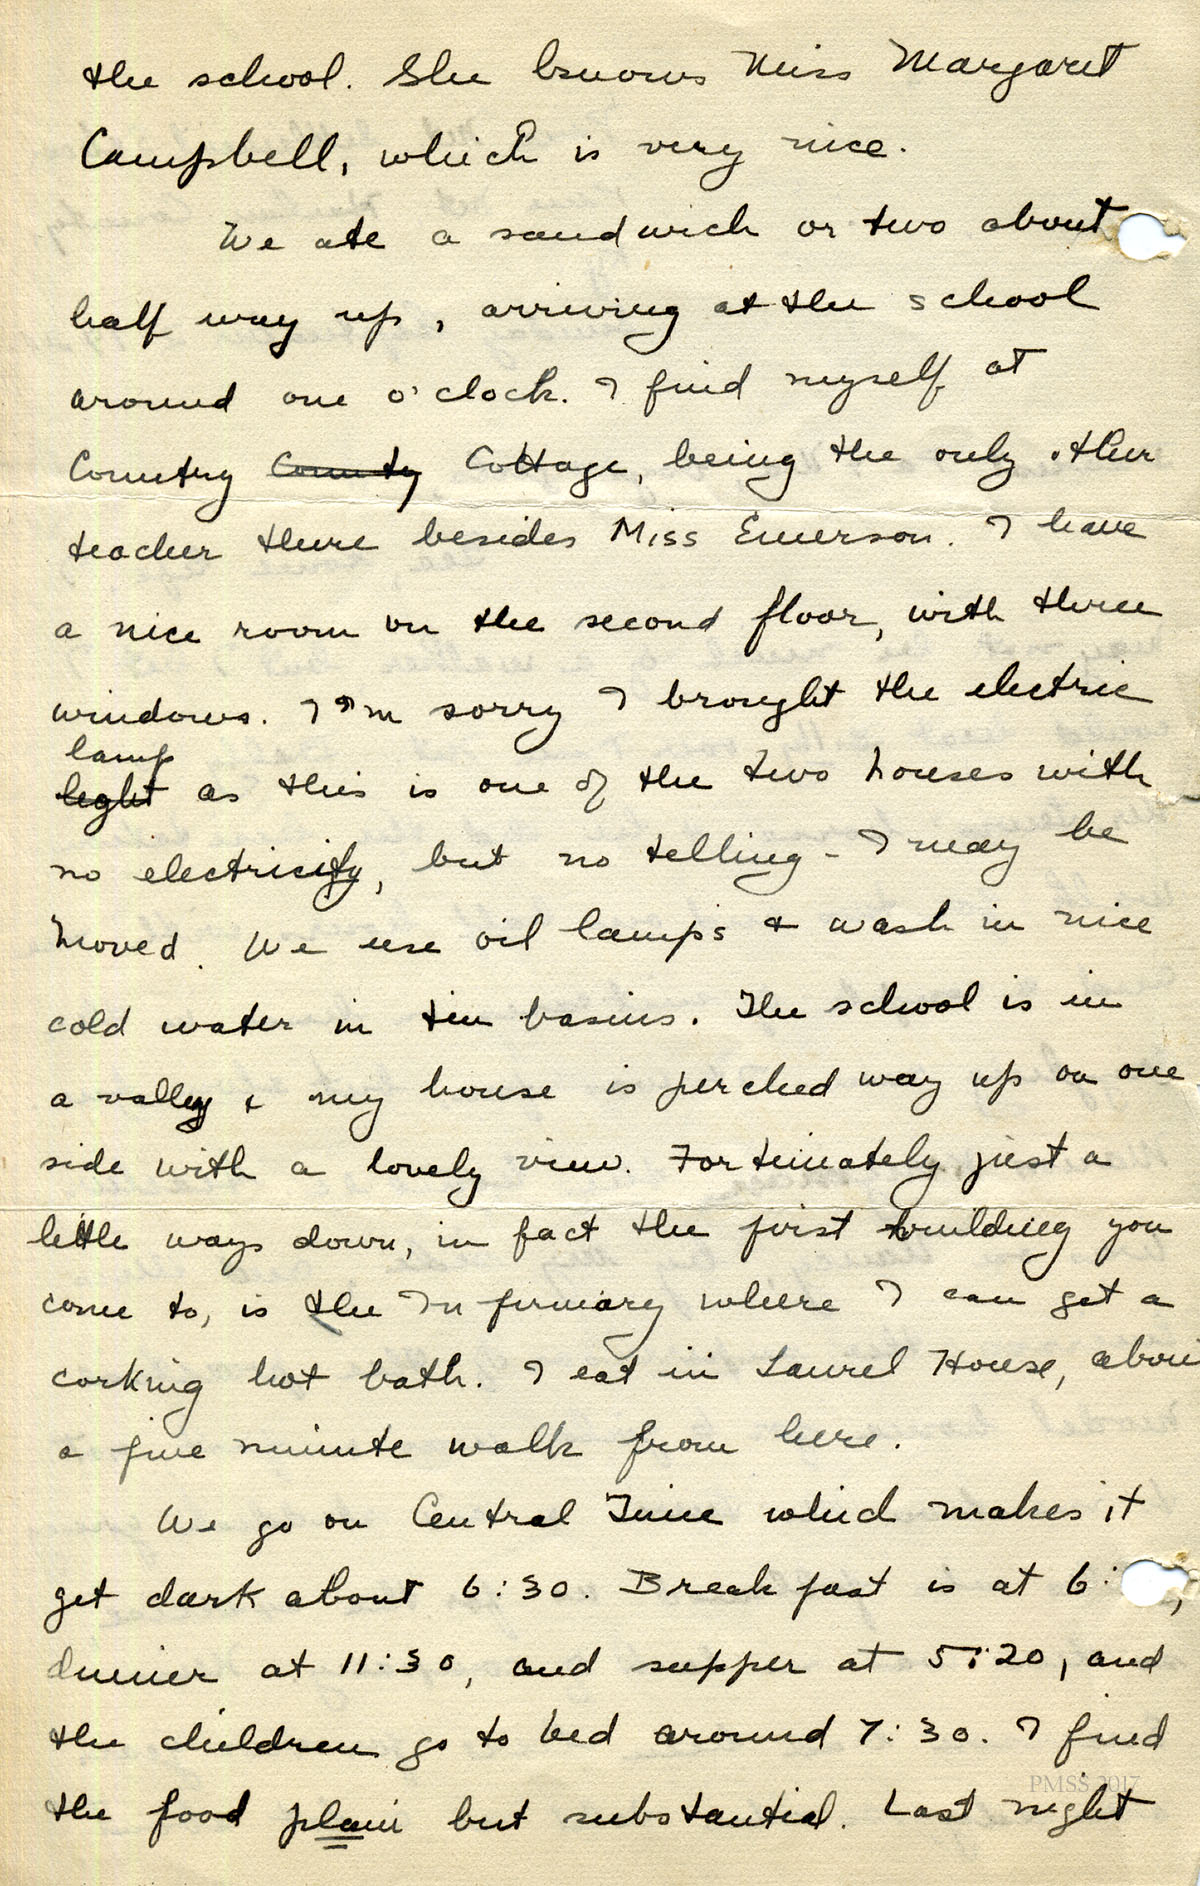 the school. She knows Miss Margaret
Campbell, which is very nice.
We ate a sandwich or two about
half way up, arriving at the school
around one o'clock. I find myself at
Country County Cottage, being the only other
teacher there besides Miss Emerson. I have
a nice room on the second floor, with three
windows. I'm sorry I brought the electric
lamp
light as this is one of the two houses with
no electricity, but no telling - I may be
moved. We use oil lamps & wash in nice
cold water in tin basins. The school is in
a valley & my house is perched way up on one
side with a lovely view. Fortunately just a
little ways down, in fact the first building you
come to, is the Infirmary where I can get a
corking hot bath. I eat in Laurel House, about
a five minute walk from here.
We go on Central Time which makes it
get dark about 6:30. Breakfast is at 6:
dinner at 11:30, and supper at 5:20, and
the children go to bed around 7:30. I find
the food plain but substantial. Last night
PMSS 2017